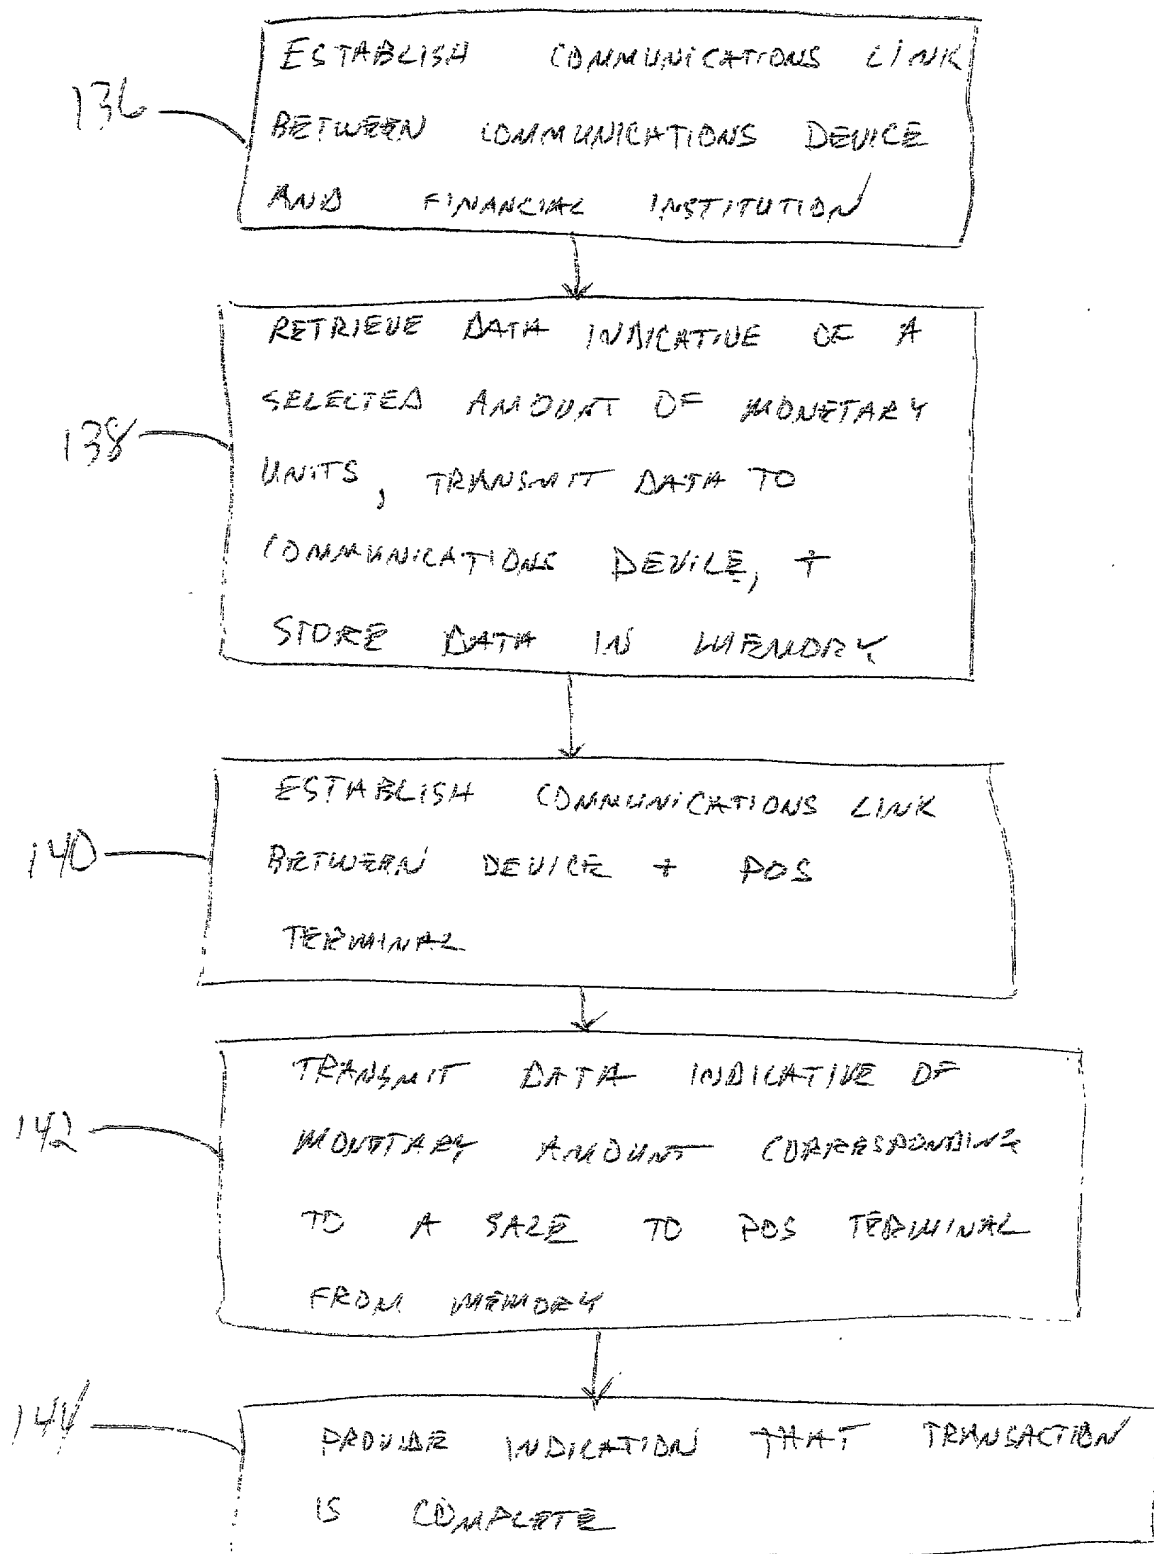 136
ESTABLISH COMMUNICATIONS LINK
BETWEEN COMMUNICATIONS DEVICE
AND FINANCIAL INSTITUTION
138
RETRIEVE DATA INDICATIVE OF A
SELECTED AMOUNT OF MONETARY
UNITS, TRANSMIT DATA TO
COMMUNICATIONS DEVICE, +
STORE DATA IN MEMORY
140
ESTABLISH COMMUNICATIONS LINK
BETWEEN DEVICE + POS
TERMINAL
142
TRANSMIT DATA INDICATIVE OF
MONETARY AMOUNT CORRESPONDING
TO A SALE TO POS TERMINAL
FROM MEMORY
144
PROVIDE INDICATION THAT TRANSACTION
IS COMPLETE